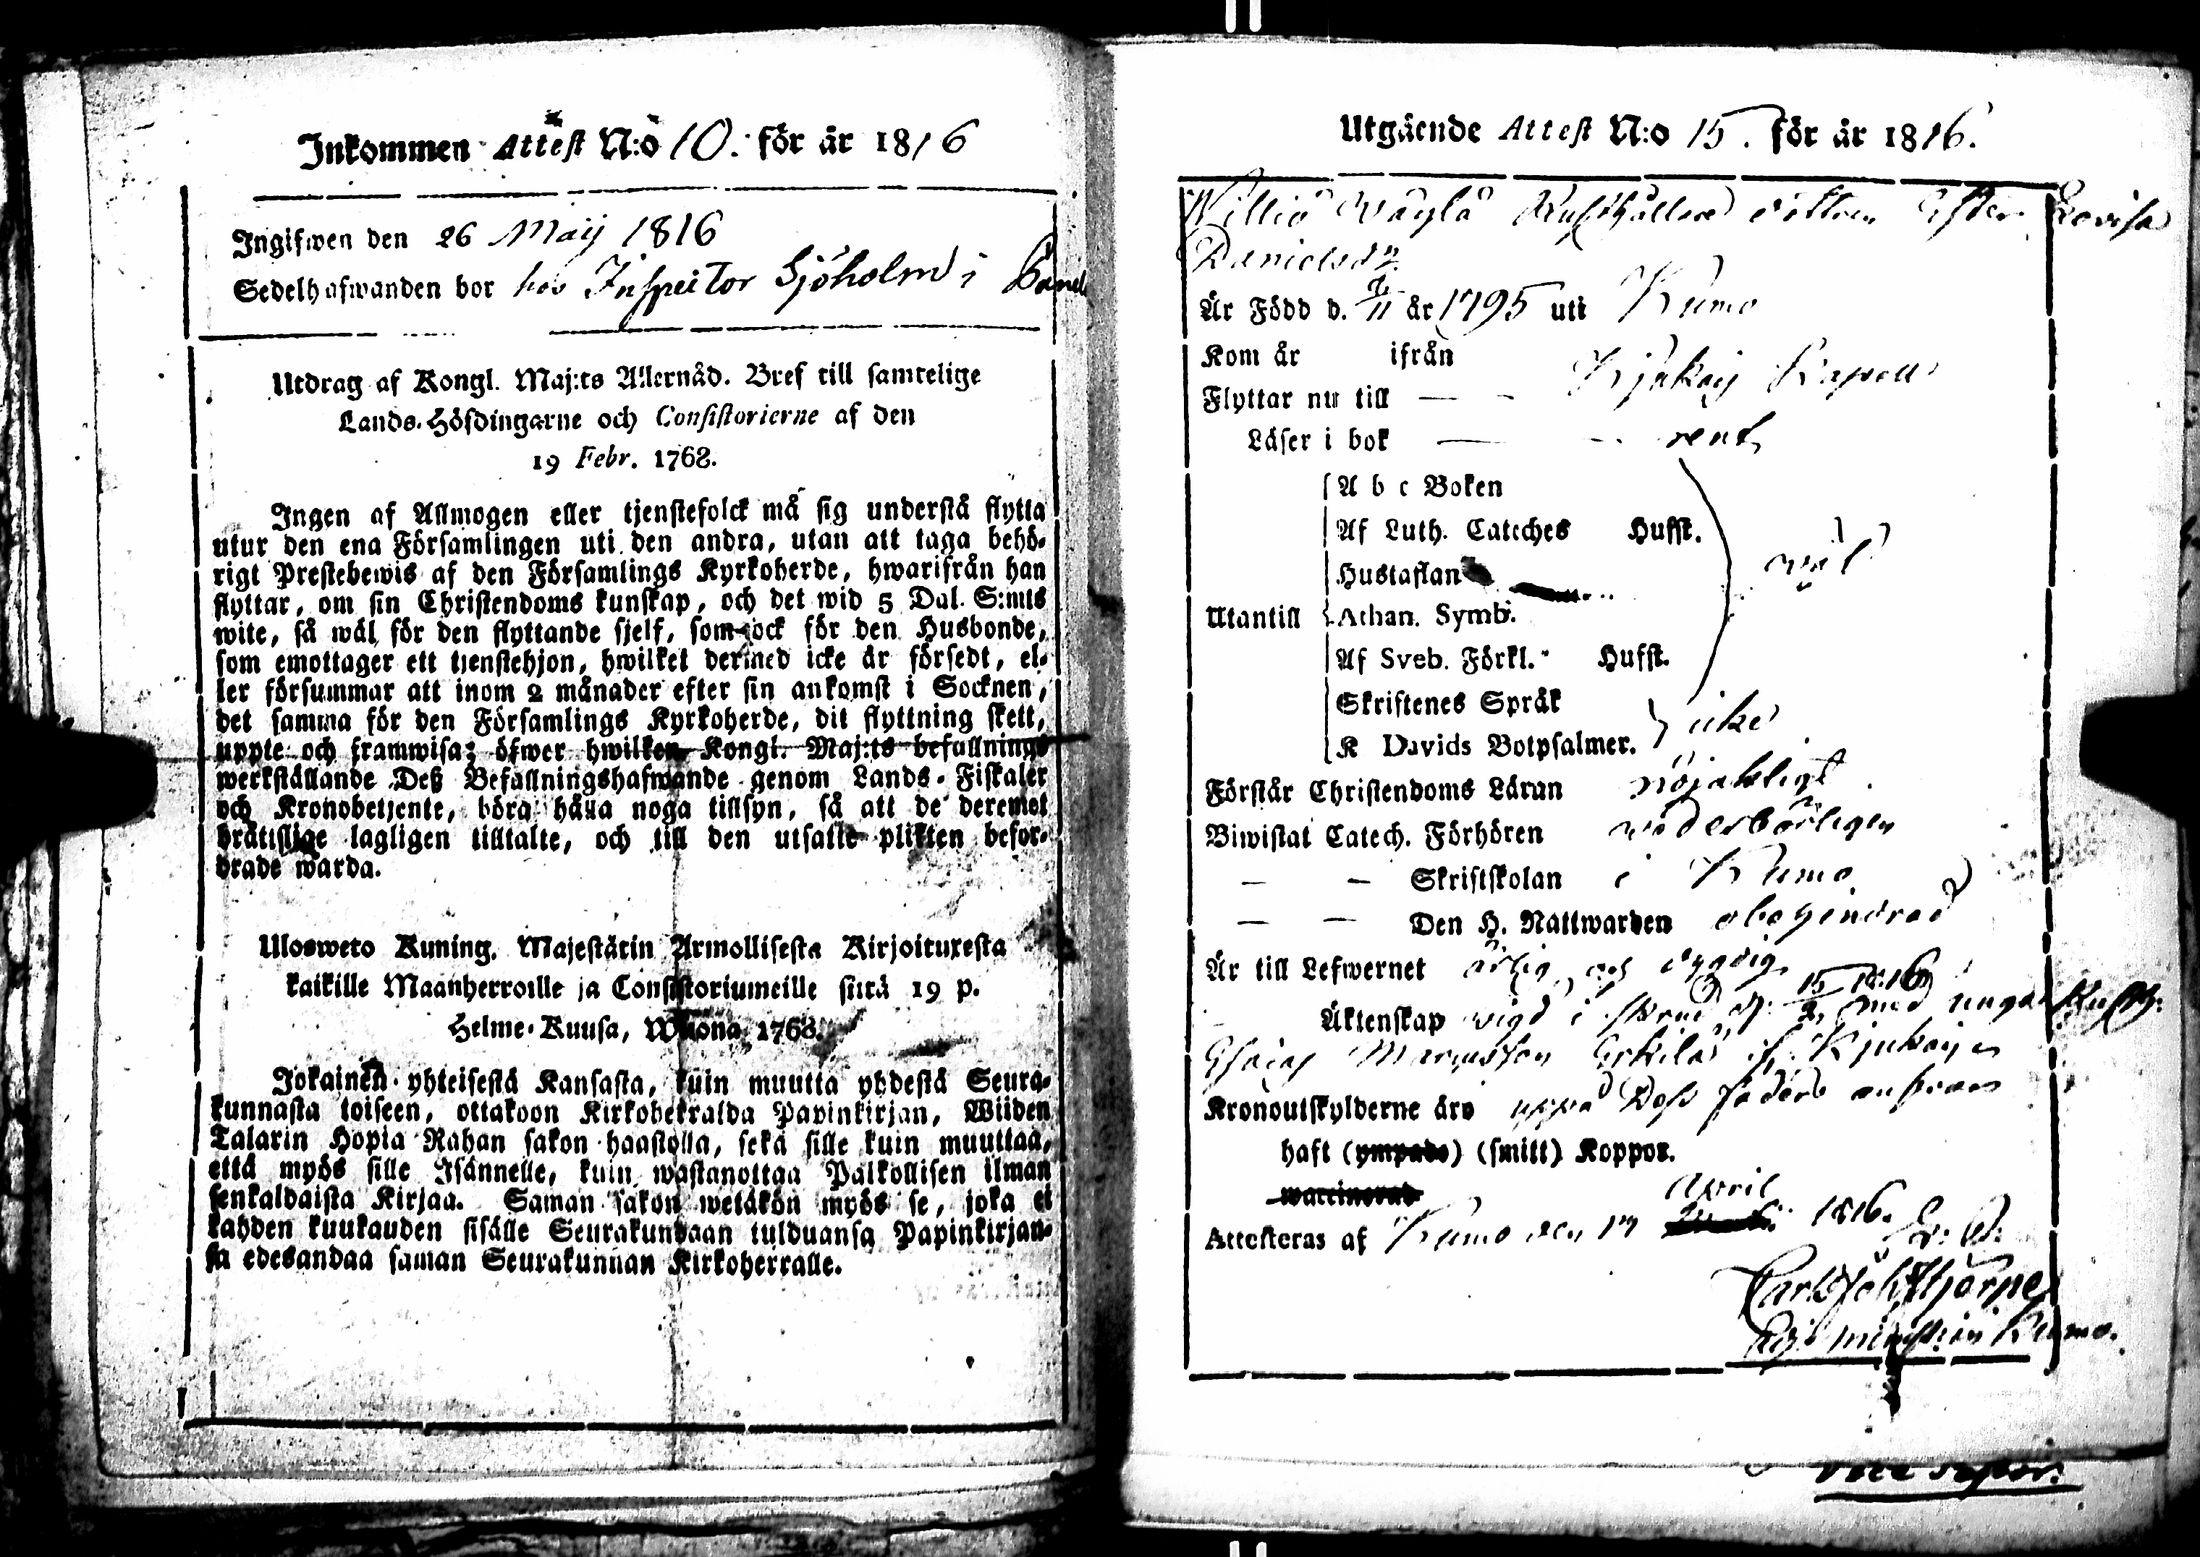 Inkommen Attest N:o 10. för år 1816
Ingifwen den 26 Maij 1816
Sedelhafwanden bor hos Inspector Sjöholm i
Utdrag af Kongl. Maj:ts Allernåd. Bref till samtelige
Lands-Höfdingarne och Consistorierne af den
19 Febr. 1768.
Ingen af Allmogen eller tjenstefolck må sig understå flytta
utur den ena Församlingen uti den andra, utan att taga behö-
rigt Prestebewis af den Församlings Kyrkoherde, hwarifrån han
flyttar, om sin Christendoms kunskap, och det wid 5 Dal. S:mts
wite, så wäl för den flyttande sjelf, som ock för den Husbonde,
som emottager ett tjenstehjon, hwilket dermed icke är försedt, el-
ler försummar att inom 2 månader efter sin ankomst i Socknen,
det samma för den Församlings Kyrkoherde, dit flyttning skett,
uppte och framwisa; öfwer hwilken Kongl. Maj:ts befallnings
werkställande Deß Befallningshafwande genom Lands-Fiskaler
och Kronobetjente, böra hålla noga tillsyn, så att de deremot
bråttslige lagligen tilltalte, och till den utsatte plikten befor-
drade warda.
Ulosweto Kuning. Majestätin Armollisesta Kirjoituxesta
kaikille Maanherroille ja Consistoriumeille siitä 19 p.
Helme-Kuusa, Wuona 1768.
Jokainen yhteisestä Kansasta, kuin muutta yhdestä Seura-
kunnasta toiseen, ottakoon Kirkoherralda Papinkirjan, Wiiden
Talarin Hopia Rahan sakon haastolla, sekä sille kuin muuttaa,
että myös sille Isännelle, kuin wastanottaa Palkollisen ilman
senkaldaista Kirjaa. Saman sakon wetäkön myös se, joka ei
kahden kuukauden sisälle Seurakundaan tulduansa Papinkirjan-
sa edesandaa saman Seurakunnan Kirkoherralle.
Utgående Attest N:o 15. för år 1816.
Willio Wäylä Rusthållare dottren Ester Lovisa
Danielsdr
Är Född d. 11 år 1795 uti Kumo
Kom år ifrån
Flyttar nu till — - Kjukais Kapell
Läser i bok — - rent
A b c Boken
Af Luth. Cateches Husst.
Hustaflan
Utantill Athan. Symb. wäl
Af Sveb. Förkl. Husst.
Skriftenes Språk
K Davids Botpsalmer. icke
Förstår Christendoms Läran nöjaktigt
Biwistat Catech. Förhören wederbörligen
— — Skriftskolan i Kumo
— — Den H. Nattwarden obehindrad
Är till Lefwernet ärlig och dygdig
Äktenskap wigd i d. 15/2 1816 med unga Rusth:
Esaias Mattsson i Kjukais
Kronoutskylderne äro uppå Dess faders answar
haft (ympade) (smitt) Koppor.
waccinerad
Attesteras af Kumo den 17 April 1816.
Carl Joh Stjerne
Adj: minist: i Kumo.